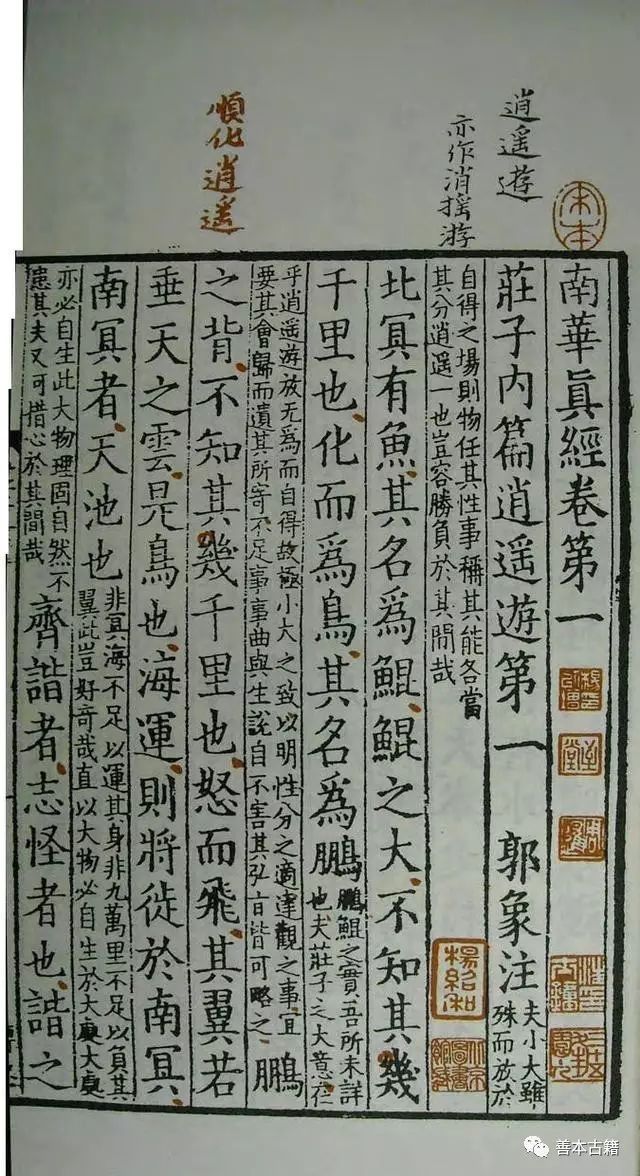 逍遥遊
亦作消摇游
順化逍遥
宋本
南華眞經卷第一
莊子内篇逍遥遊第一 郭象注 夫小大雖
殊而放於
自得之場則物任其性事稱其能各當
其分逍遥一也豈容勝負於其間哉
北冥有魚其名爲鯤鯤之大不知其幾
千里也化而爲鳥其名爲鵬 鵬鯤之實吾所未詳
也夫莊子之大意在
乎逍遥遊放无爲而自得故極小大之致以明性分之適達觀之事宜
要其會歸而遺其所寄不足事事曲與生說自不害其弘旨皆可略之
鵬
之背不知其幾千里也怒而飛其翼若
垂天之雲是鳥也海運則將徙於南冥
南冥者天池也 非冥海不足以運其身非九萬里不足以負其
翼此豈好奇哉直以大物必自生於大處大處
亦必自生此大物理固自然不
患其失又可措心於其間哉
齊諧者志怪者也諧之
楊紹和
善本古籍